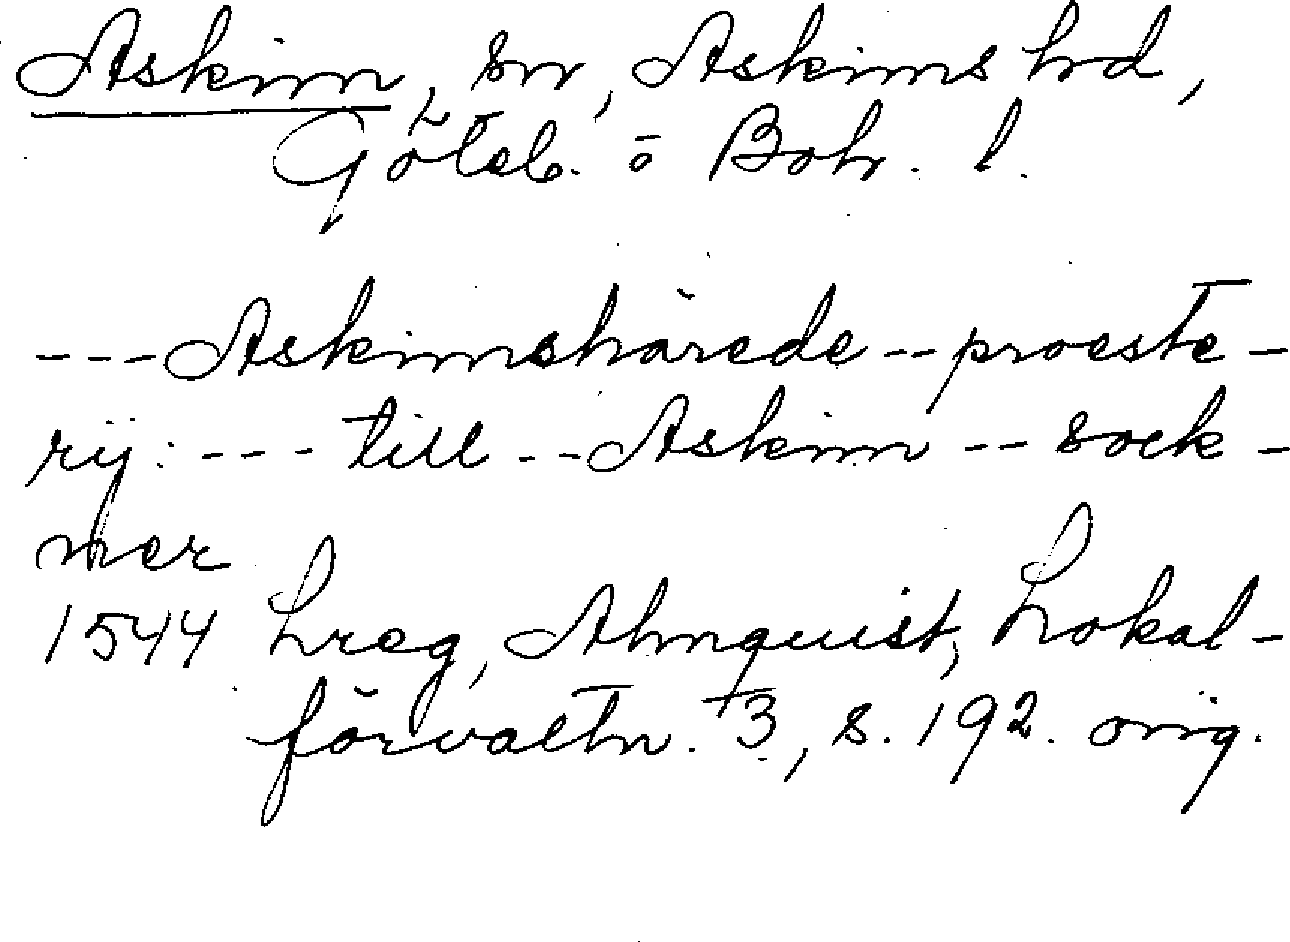 Askim, sn, Askims hrd,
Göteb. o Boh. l.
---Askimshärede--proeste-
rij:---till--Askim--sock-
ner
1544 Lreg, Almquist, Lokal-
förvaltn. 3, s. 192. orig.